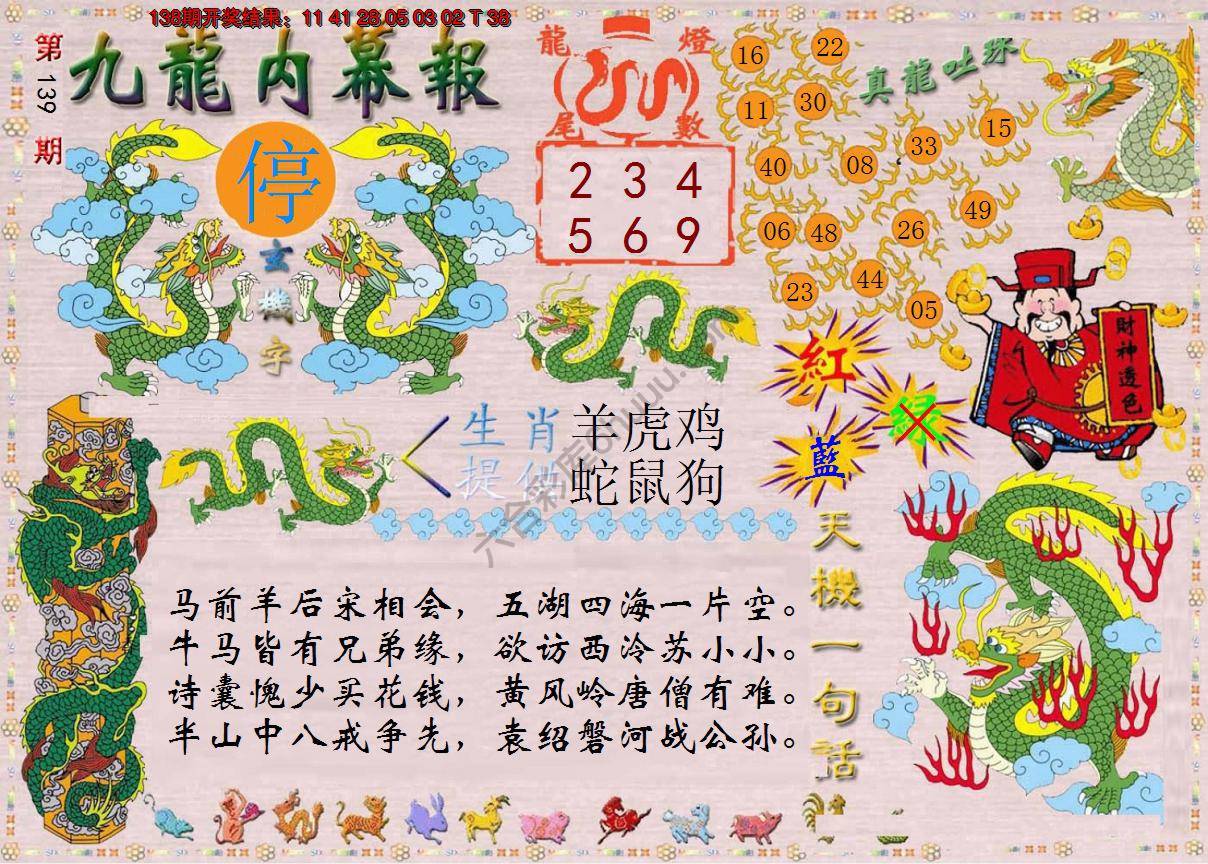 138期开奖结果：11 41 28 05 03 02 T 38
第139期
九龍内幕報
停
玄機字
龍燈尾數
2 3 4
5 6 9
真龍吐珠
16 22
11 30
40 08 33 15
06 48 26 49
23 44 05
財神透色
紅
绿
藍
生肖 羊虎鸡
提供 蛇鼠狗
天機一句話
马前羊后宋相会，五湖四海一片空。
牛马皆有兄弟缘，欲访西冷苏小小。
诗囊愧少买花钱，黄风岭唐僧有难。
半山中八戒争先，袁绍磐河战公孙。